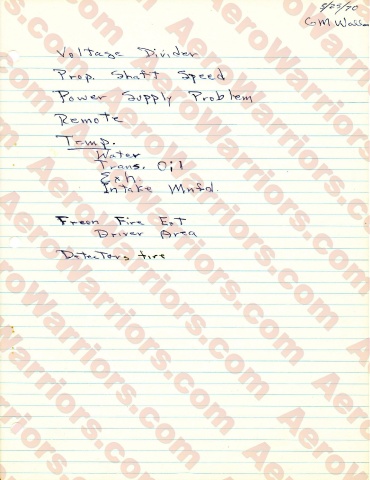 5/25/70
G M Wallace
Voltage Divider
Prop. Shaft Speed
Power Supply Problem
Remote
Temp.
Water
Trans. Oil
Exh.
Intake Mnfd.
Freon Fire Ext
Driver Area
Detectors fire
AeroWarriors.com